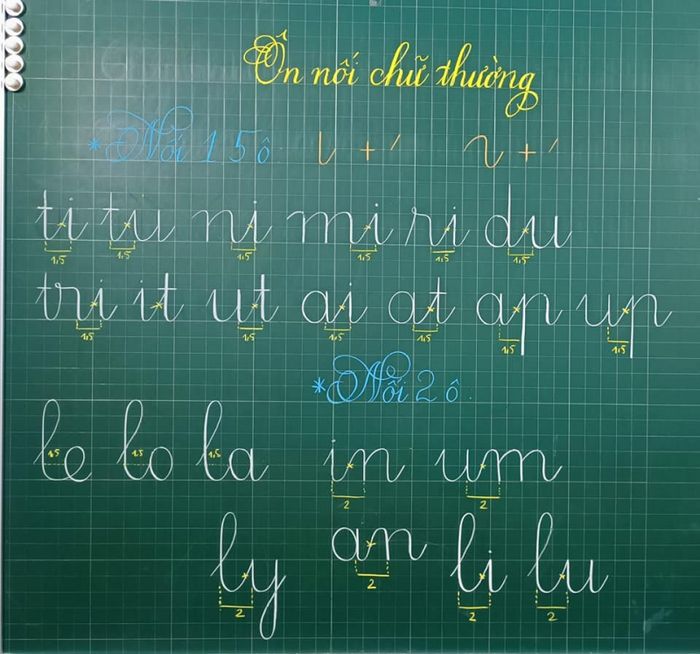 Ôn nối chữ thường
*Nối 1 5 ô ɩ + ′ ɂ + ′
ti tu ni mi ri du
1,5 1,5 1,5 1,5 1,5 1,5
tri it ut ai at ap up
1,5 1,5 1,5 1,5 1,5 1,5
*Nối 2 ô
le lo la in um
1,5 1,5 1,5 2 2
ly an li lu
2 2 2 2